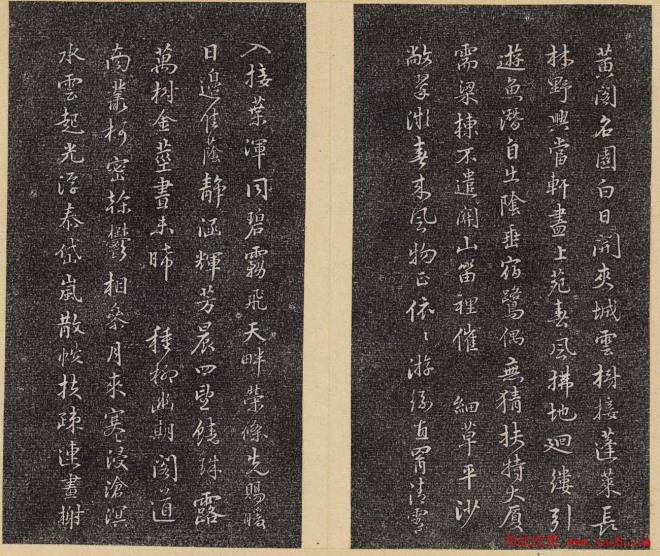 黄阁名園白日開夾城雲樹接蓬萊長
林野興當軒盡上苑春風拂地廻縷引
遊魚潛自出陰垂宿鷺偶無猜扶持大厦
需梁棟不遣關山笛裡催 細草平沙
敞翠微春来風物正依〻游絲直罥清霄
入接葉渾同碧霧飛天畔榮條先賜暖
日邉佳蔭静涵輝芳晨四望饒珠露
萬樹金莖晝未晞 種柳幽期閣道
南叢柯密幹鬱相叅月來寒浸滄溟
水雲起光浮泰岱嵐散帙扶疎連畫榭